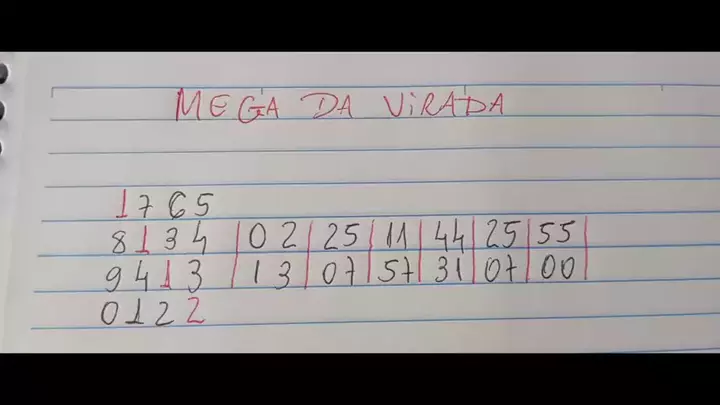 MEGA DA ViRADA
1765
8134 | 02 | 25 | 11 | 44 | 25 | 55 |
9413 | 13 | 07 | 57 | 31 | 07 | 00 |
0122